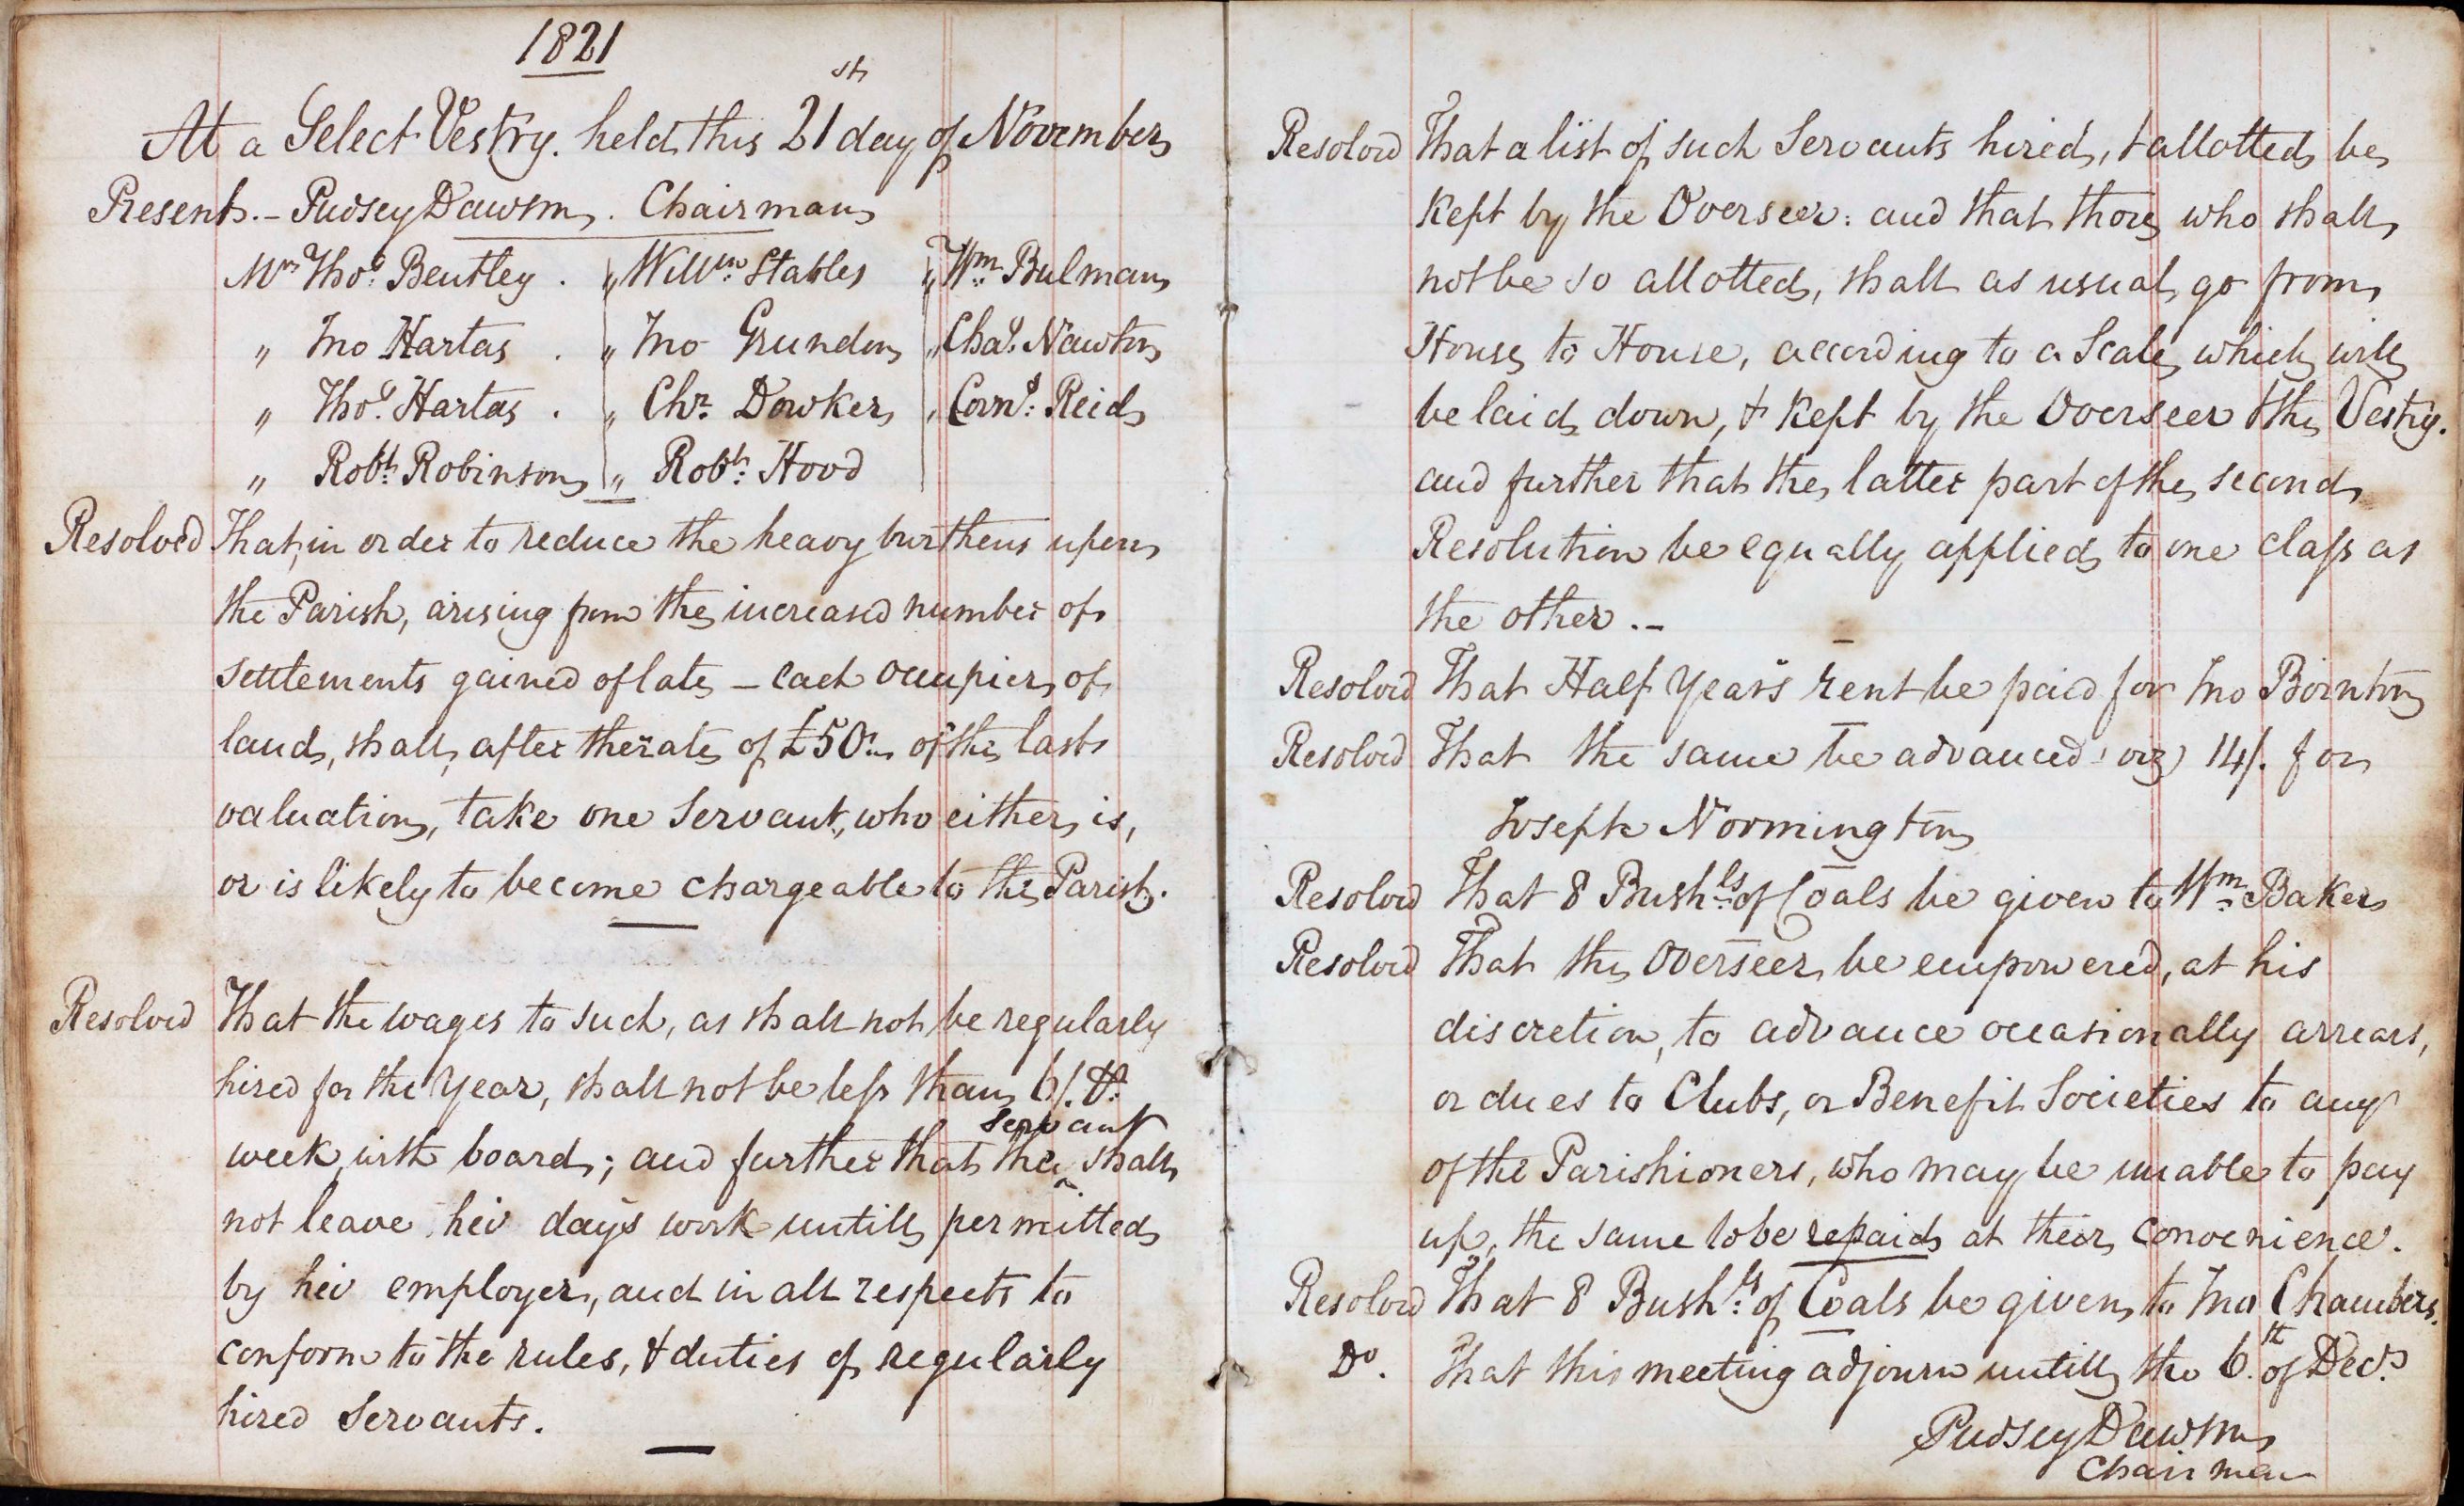 1821
At a Select Vestry. held this 21st day of November
Present. – Pudsey Dawson. Chairman
Mr Thos. Bentley . „ Willm. Stables „ Wm. Bulman
„ Jno Hartas . „ Jno Grundon „ Chas. Nawton
„ Thos. Hartas . „ Chr. Dowker „ Corns. Reid
„ Robt. Robinson „ Robt. Hood
Resolved That, in order to reduce the heavy burthens upon
the Parish, arising from the increased number of
settlements gained of late – each occupier of
land, shall, after the rate of £50. of the last
valuation, take one Servant, who either is,
or is likely to become chargeable to the Parish.
Resolved That the wages to such, as shall not be regularly
hired for the Year, shall not be less than 6/. Pr.
week with board; and further that the servant shall
not leave his days work untill permitted
by his employer, and in all respects to
conform to the rules, & duties of regularly
hired Servants.
Resolved That a list of such Servants hired, & allotted be
kept by the Overseer: and that those who shall
not be so allotted, shall as usual go from
House to House, according to a Scale which will
be laid down, & kept by the Overseer & the Vestry.
and further that the latter part of the second
Resolution be equally applied to one class as
the other . –
Resolved That Half Year's rent be paid for Jno Bointon
Resolved That the same be advanced viz 14/. for
Joseph Normington
Resolved That 8 Bushls. of Coals be given to Wm. Baker
Resolved That the Overseer be empowered, at his
discretion, to advance occasionally arrears,
or dues to Clubs, or Benefit Societies to any
of the Parishioners, who may be unable to pay
up, the same to be repaid at their convenience.
Resolved That 8 Bushls. of Coals be given to Jno Chambers.
Do. That this meeting adjourn untill the 6th. of Decr.
Pudsey Dawson
Chairman